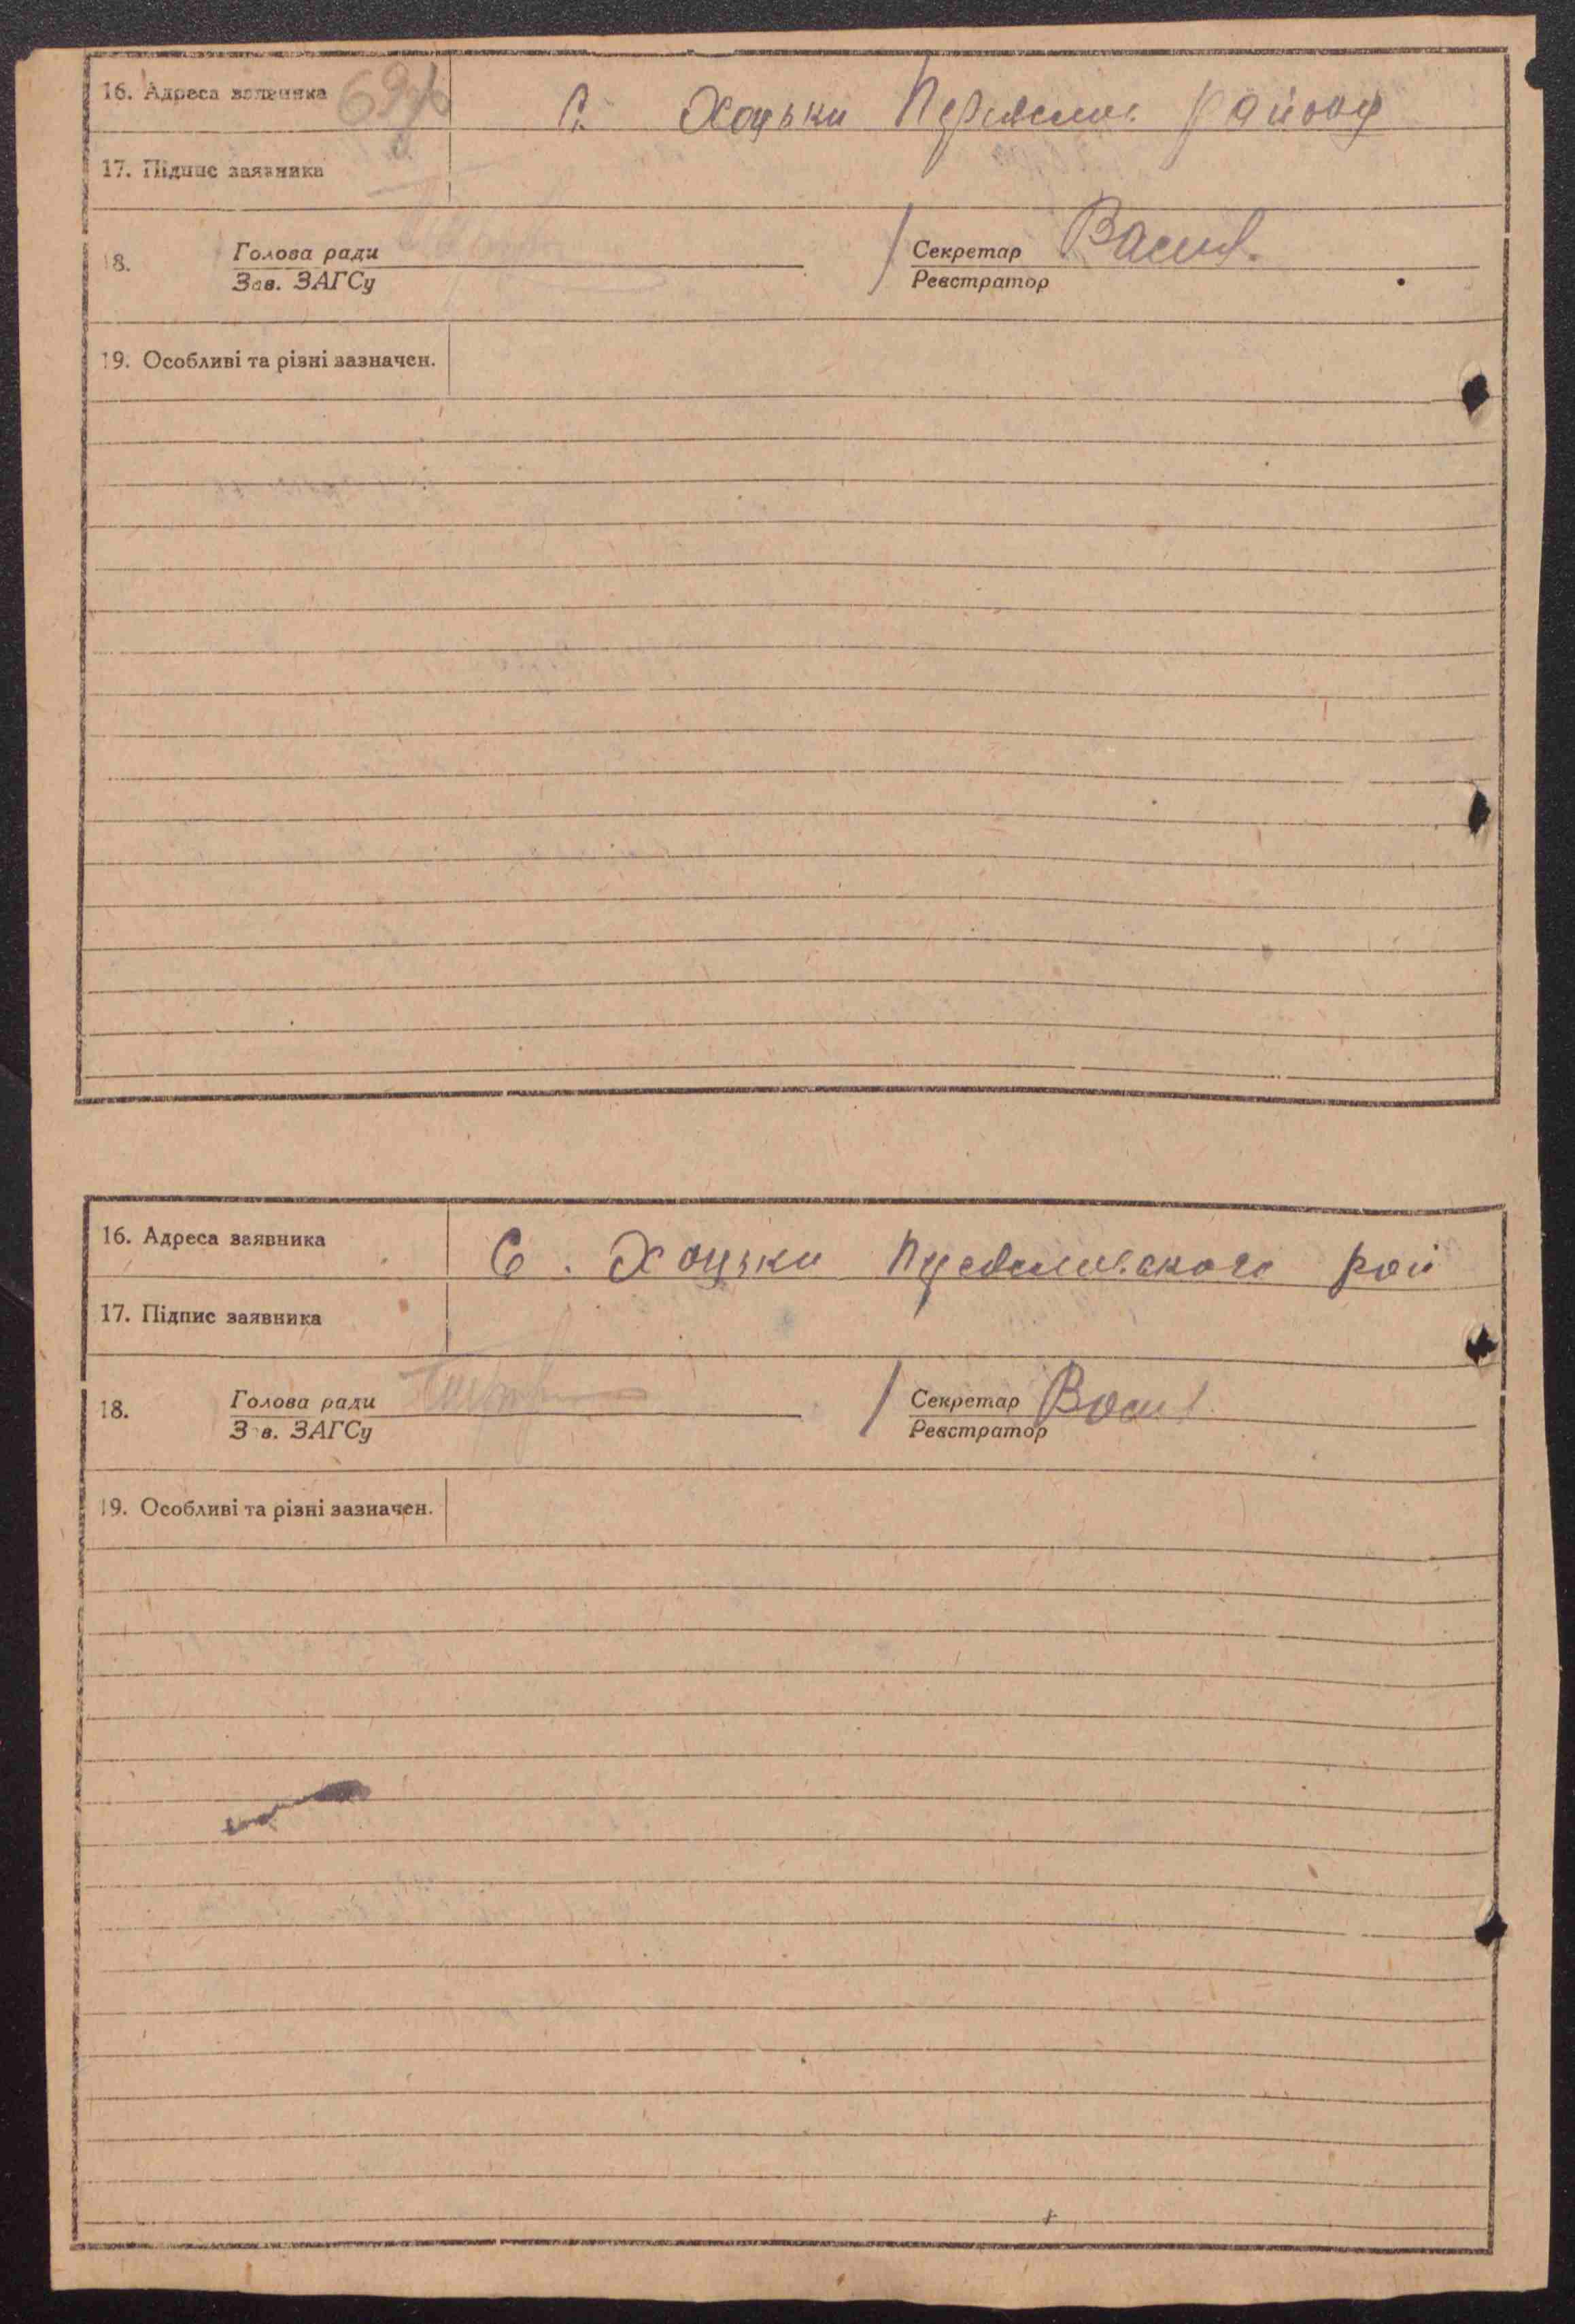 16. Адреса заявника
С. Хоцьки Переяслів. району
17. Підпис заявника
18. Голова ради Секретар
Зав. ЗАГСу Реєстратор
19. Особливі та різні зазначен.
16. Адреса заявника
С. Хоцьки рай
17. Підпис заявника
18. Голова ради Секретар
Зав. ЗАГСу Реєстратор
19. Особливі та різні зазначен.